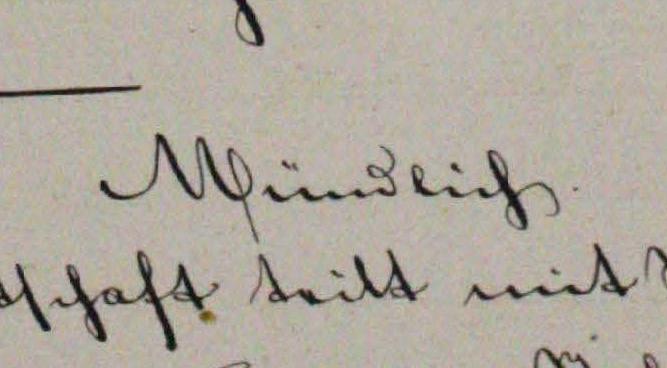 Mündlich.
tschaft teilt mit